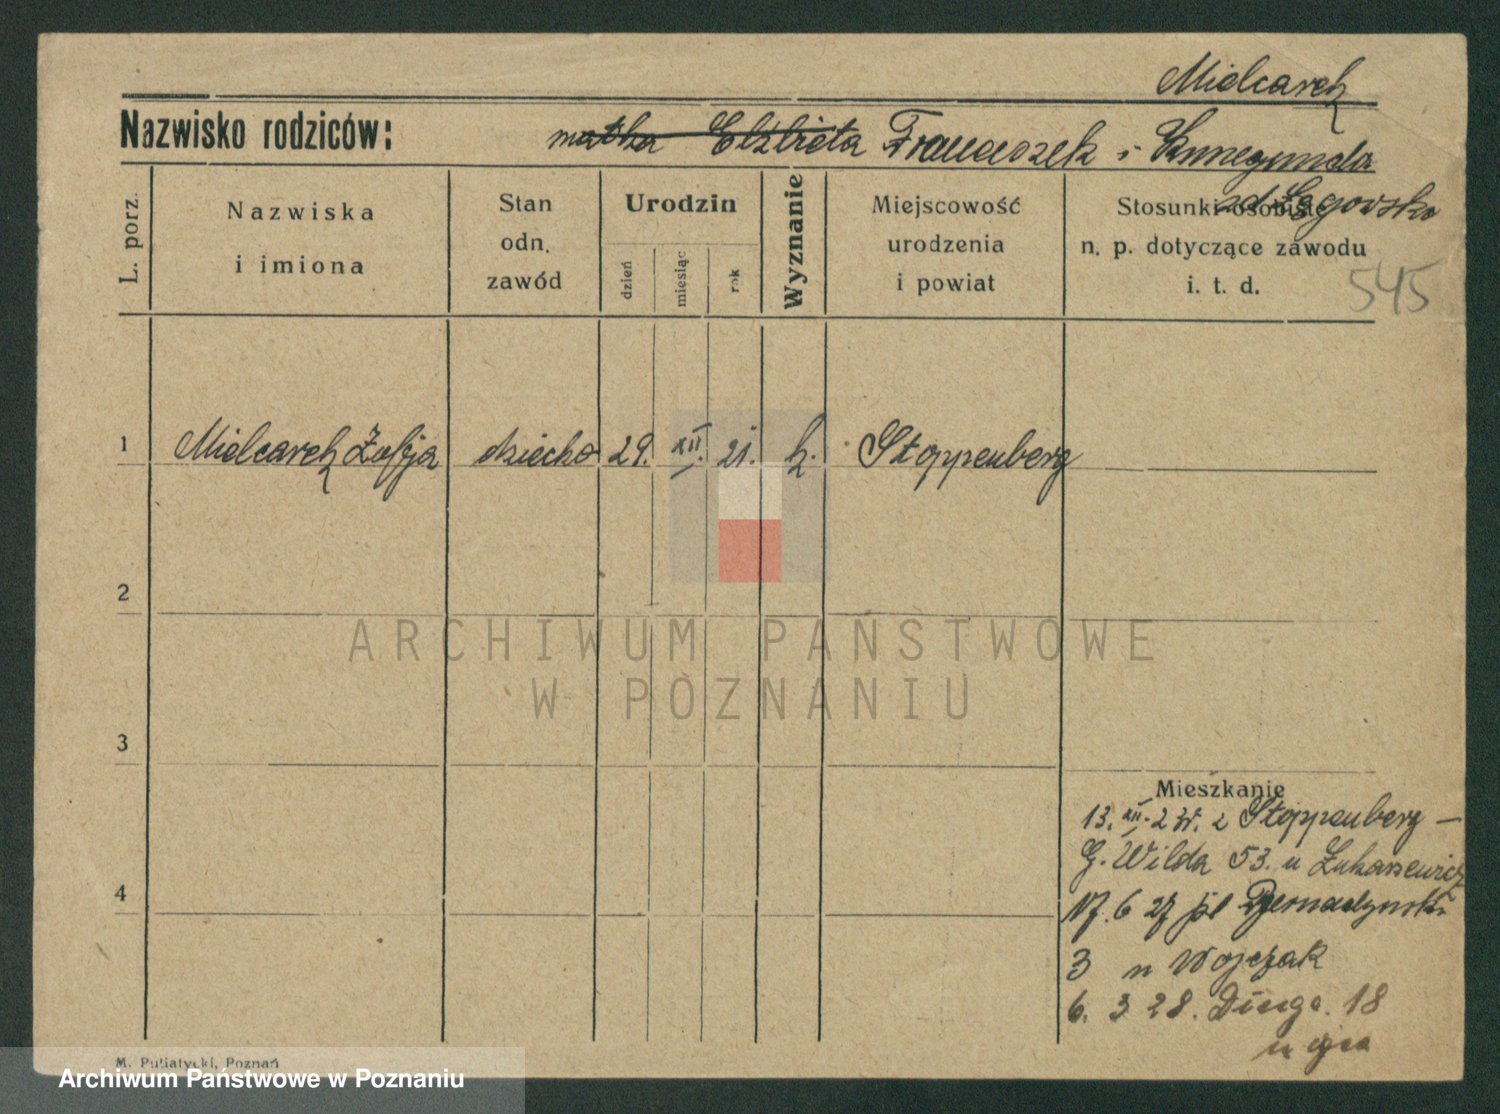 Mielcarek
Nazwisko rodziców: matka Elżbieta Franciszek i Kunegunda
zd. Łagovska
L. porz.
Nazwiska
i imiona
Stan
odn.
zawód
Urodzin
dzień
miesiąc
rok
Wyznanie
Miejscowość
urodzenia
i powiat
Stosunki osobiste
n. p. dotyczące zawodu
i. t. d.
545
1 Mielcarek Zofja dziecko 29. XII. 21. k. Stoppenberg
2
3
4
Mieszkanie
13. XII. 23r. z Stoppenberg —
G. Wilda 53. u Łukasiewicz
17. 6 27 pl Bernadyński
3 u Wojczak
6. 3 28. Długa. 18
u ojca
M. Putiatycki, Poznań
ARCHIWUM PAŃSTWOWE
W POZNANIU
Archiwum Państwowe w Poznaniu